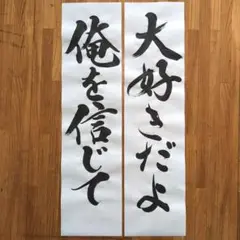 大好きだよ
俺を信じて